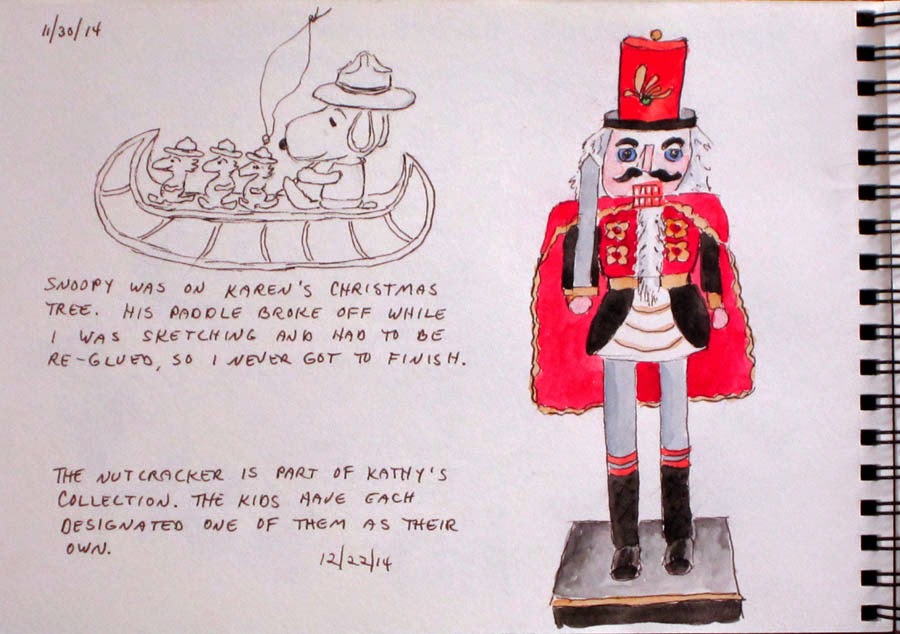 11/30/14
SNOOPY WAS ON KAREN'S CHRISTMAS
TREE. HIS PADDLE BROKE OFF WHILE
I WAS SKETCHING AND HAD TO BE
RE-GLUED, SO I NEVER GOT TO FINISH.
THE NUTCRACKER IS PART OF KATHY'S
COLLECTION. THE KIDS HAVE EACH
DESIGNATED ONE OF THEM AS THEIR
OWN.
12/22/14